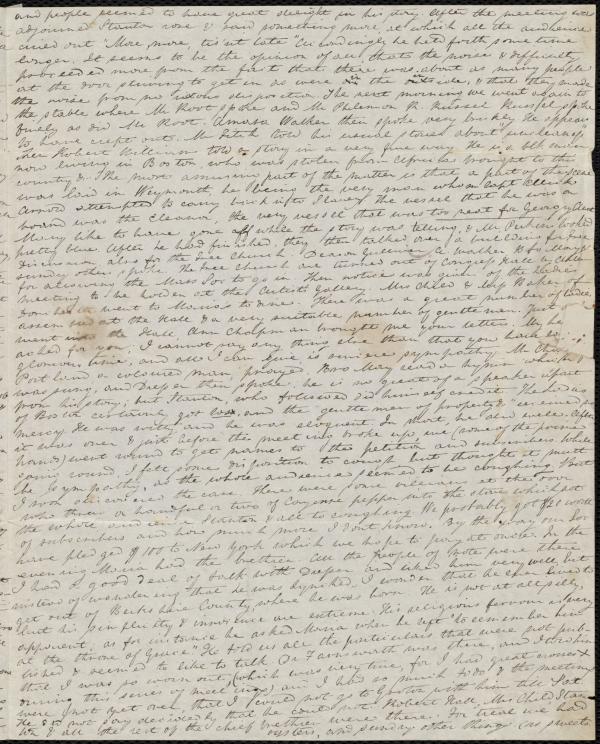 and people seemed to have great delight in his story. After the meeting was
adjourned Stanton rose & said something more, at which all the audience
cried out "More, more, tisnt late" Accordingly he held forth some time
longer. It seems to be the opinion of all that the noise & difficulty
proceeded more from the fact that there was about as many people
at the door striving to get in as were in side, & that they made
the noise from no vicious disposition The next morning we went again to
the stable where Mr Root spoke and Mr Philemon R. Russel spoke
finely as did Mr Root. Amasa Walker then spoke very He appears
to have crept out. Mr Fitch told his usual stories about
then Robert Williams told a story in a very fine way. He is a blk man
now living in Boston who was stolen from Africa & brought to this
country & The most amusing part of the matter is that a part of the scene
was laid in Weymouth he being the very man whom Capt
attempted to carry back into slavery the vessel that he was on
board was the Eleanor. the very vessel that was too neat for Georgy Aunt
Mary like to have gone off while the story was telling, & Mr Perkins looked
pretty blue. After he had finished they then talked over a building for free
discussion, also for the free church. Deacon Amasa Walker
sundry others spoke. The free Church are turned out of Congress Hall by
for allowing the Mass Soc to go in. Then notice was given of the ladies
meeting to be holden at the Artists Gallery. Mrs Child & Miss
went to Maria's to dine. There was a great number of ladies
assembled at the Hall & a very suitable number of gentlemen. Just
went into the Hall Ann Chapman brought me your letters. My
ached for you, I cannot say any thing else than that you have
glorious time, and all I can give is sincere sympathy Mr
Port Wind a coloured man prayed. Bro May read a hymn which
was sung, and then spoke. he is no great of a speaker apart
from his story; but Stanton, who followed did himself credit The ladies
of Boston certainly got & the gentlemen of property &
mercy He was witty and he was eloquent In short, he did well. After
it was over & just before the meeting broke up, we (some of the
hands) went round to get names to the petition and subscribers While
going round I felt some disposition to cough but thought it must
be sympathy, as the whole audience seemed to be coughing. But
I soon discovered the cause. There were some villains at the door
who threw a handful or two of Cayenne pepper into the stove which set
the whole audience Stanton & all to coughing We probably got worth
of subscribers and how much more I dont know. By the way our Soc
have pledged $100 to New York which we hope to pay at once. In the
evening Maria had the brethren All the people of note were there
I had a good deal of talk with and liked him very well, but
instead of wondering that he was lynched, I wonder that he ever lived to
get out of Berkshire County where he was born He is not at all silly,
but his simplicity & innocence are extreme. His religious fervour is very
apparent, as for instance he asked Maria when he left "to remember him
at the throne of Grace" He told us all the particulars that were not pub-
lished & seemed to like to talk Dr Farnsworth was there, and I told him
that I was so worn out, (which was very true, for I had great crosses
during this series of meetings) and I had so much to do & the meetings
were not yet over, that I could not go to Groton with him till Sat
He did not say decidedly that he could not. Robert Hall, Mrs Child
& all the rest of the chief brethren were there. For treat we had
oysters, and sundry other things (as sweets